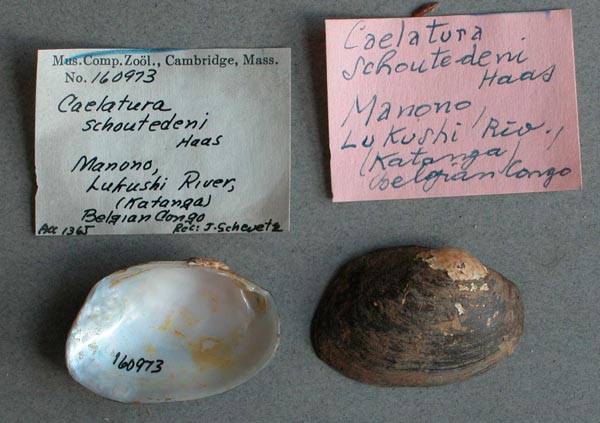 Mus.Comp.Zoöl., Cambridge, Mass.
No. 160973
Caelatura
schoutedeni
Haas
Manono,
Lukushi River,
(Katanga)
Belgian Congo
Acc 1365 Rec: J. Schwetz
Caelatura
schoutedeni
Haas
Manono,
Lukushi Riv.,
(Katanga)
Belgian Congo
160973